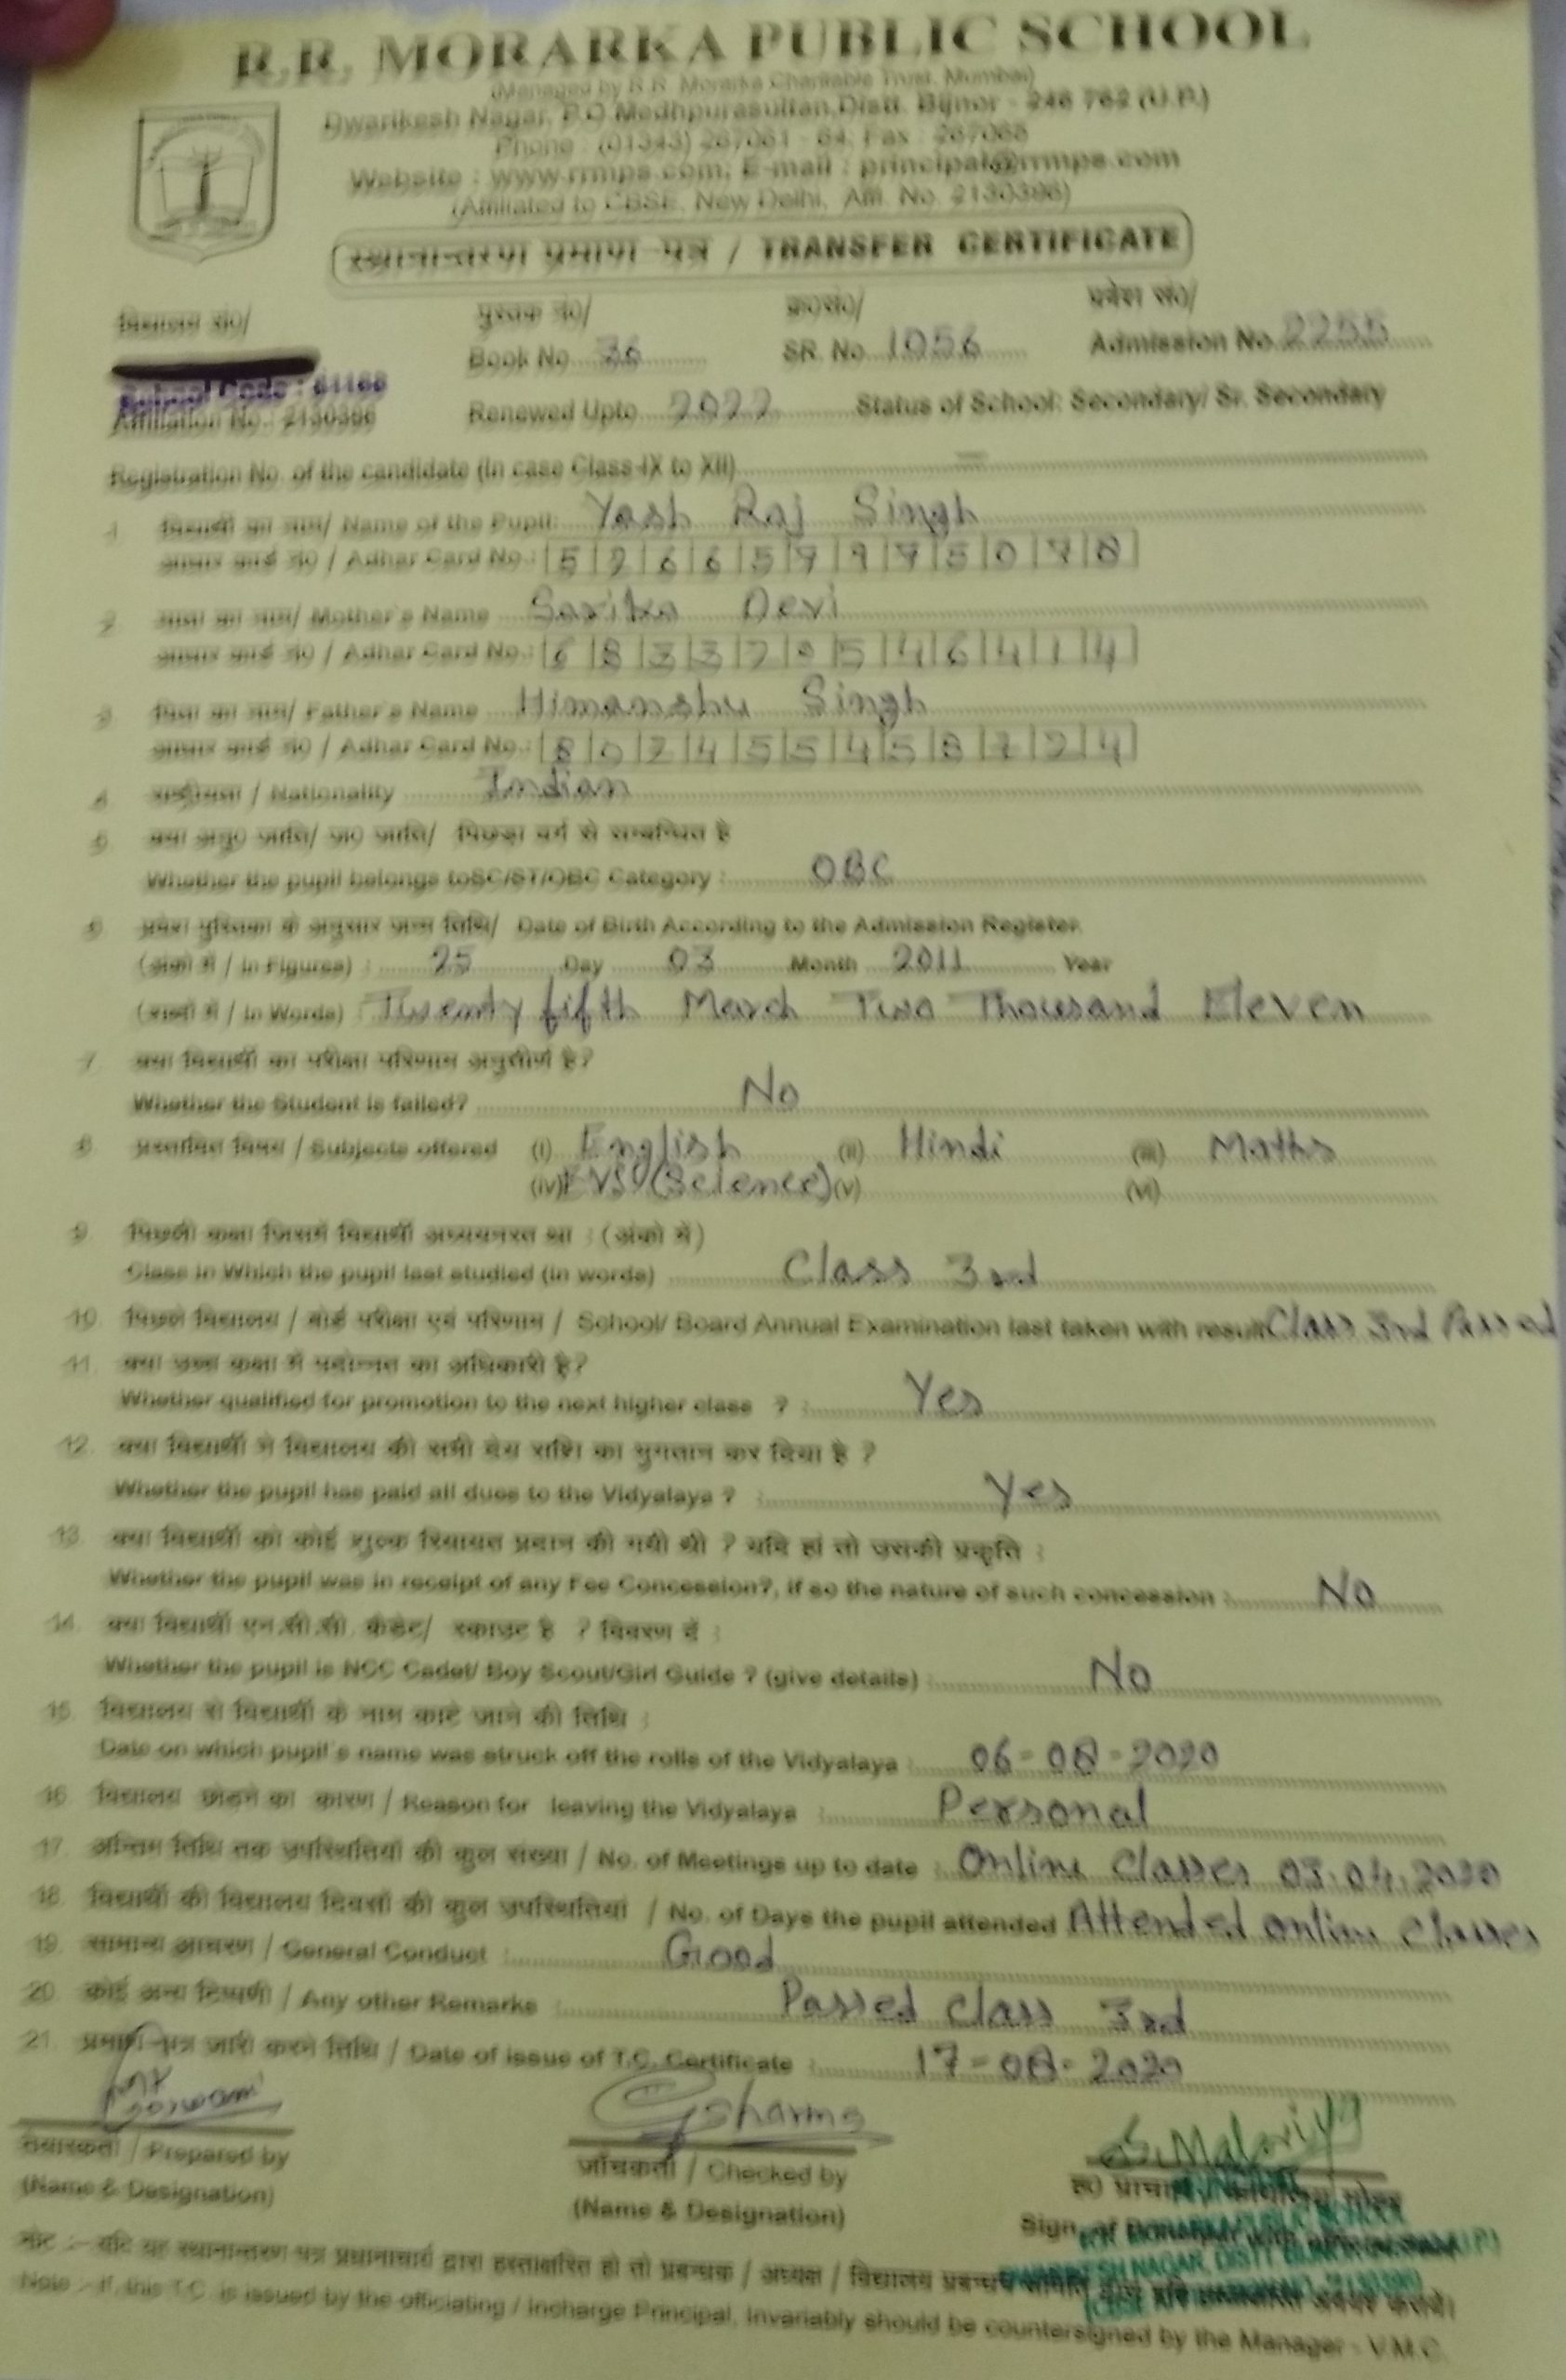 R.R. MORARKA PUBLIC SCHOOL
(Managed by R.R. Morarka Charitable Trust, Mumbai)
Dwarikesh Nagar, P.O Medhpurasultan, Distt. Bijnor - 246 762 (U.P.)
Phone : (01343) 267061 - 64, Fax : 267065
Website : www.rrmps.com; E-mail : principal@rrmps.com
(Affiliated to CBSE, New Delhi, Affi. No. 2130396)
स्थानान्तरण प्रमाण पत्र / TRANSFER CERTIFICATE
विद्यालय सं०/ पुस्तक नं०/ क्र०सं०/ प्रवेश सं०/
Book No 36 SR. No. 1056 Admission No. 2255
School Code : 61168
Affiliation No. : 2130396 Renewed Upto 2022 Status of School: Secondary/ Sr. Secondary
Registration No. of the candidate (In case Class-IX to XII) —
1 विद्यार्थी का नाम/ Name of the Pupil: Yash Raj Singh
आधार कार्ड नं० / Adhar Card No.:
2 माता का नाम/ Mother's Name Sarika Devi
आधार कार्ड नं० / Adhar Card No.:
3 पिता का नाम/ Father's Name Himanshu Singh
आधार कार्ड नं० / Adhar Card No.:
4 राष्ट्रीयता / Nationality Indian
5 क्या अनु० जाति/ ज० जाति/ पिछड़ा वर्ग से सम्बन्धित है
Whether the pupil belongs toSC/ST/OBC Category : OBC
6 प्रवेश पुस्तिका के अनुसार जन्म तिथि/ Date of Birth According to the Admission Register
(अंकों में / In Figures) : 25 Day 03 Month 2011 Year
(शब्दों में / In Words) Twenty fifth March Two Thousand Eleven
7 क्या विद्यार्थी का परीक्षा परिणाम अनुत्तीर्ण है?
Whether the Student is failed? No
8 प्रस्तावित विषय / Subjects offered (i) English (ii) Hindi (iii) Maths
(iv) EVS (Science) (v) (vi)
9 पिछली कक्षा जिसमें विद्यार्थी अध्ययनरत था : (अंको में)
Class in Which the pupil last studied (in words) Class 3rd
10. पिछले विद्यालय / बोर्ड परीक्षा एवं परिणाम / School/ Board Annual Examination last taken with result Class 3rd Passed
11. क्या उच्च कक्षा में पदोन्नत का अधिकारी है?
Whether qualified for promotion to the next higher class ? : Yes
12. क्या विद्यार्थी ने विद्यालय की सभी देय राशि का भुगतान कर दिया है ?
Whether the pupil has paid all dues to the Vidyalaya ? : Yes
13. क्या विद्यार्थी को कोई शुल्क रियायत प्रदान की गयी थी ? यदि हां तो उसकी प्रकृति :
Whether the pupil was in receipt of any Fee Concession?, if so the nature of such concession : No
14. क्या विद्यार्थी एन.सी.सी. कैडेट/ स्काउट है ? विवरण दें :
Whether the pupil is NCC Cadet/ Boy Scout/Girl Guide ? (give details) : No
15. विद्यालय से विद्यार्थी के नाम काटे जाने की तिथि :
Date on which pupil's name was struck off the rolls of the Vidyalaya : 06-08-2020
16. विद्यालय छोड़ने का कारण / Reason for leaving the Vidyalaya : Personal
17. अन्तिम तिथि तक उपस्थितियों की कुल संख्या / No. of Meetings up to date : Online Classes 03.04.2020
18. विद्यार्थी की विद्यालय दिवसों की कुल उपस्थितियां / No. of Days the pupil attended Attended online classes
19. सामान्य आचरण / General Conduct : Good
20. कोई अन्य टिप्पणी / Any other Remarks : Passed class 3rd
21. प्रमाण-पत्र जारी करने तिथि / Date of issue of T.C. Certificate : 17-08-2020
Goswami Gsharma S. Malaviya
तैयारकर्ता / Prepared by जाँचकर्ता / Checked by ह० प्राचार्य
(Name & Designation) (Name & Designation) Sign. of Principal with
R.R. MORARKA PUBLIC SCHOOL
DWARIKESH NAGAR, DISTT. BIJNOR
नोट :- यदि यह स्थानान्तरण पत्र प्रधानाचार्य द्वारा हस्ताक्षरित हो तो प्रबन्धक / अध्यक्ष / विद्यालय प्रबन्धन समिति द्वारा
Note :- If, this T.C. is issued by the officiating / Incharge Principal, Invariably should be countersigned by the Manager - V.M.C.